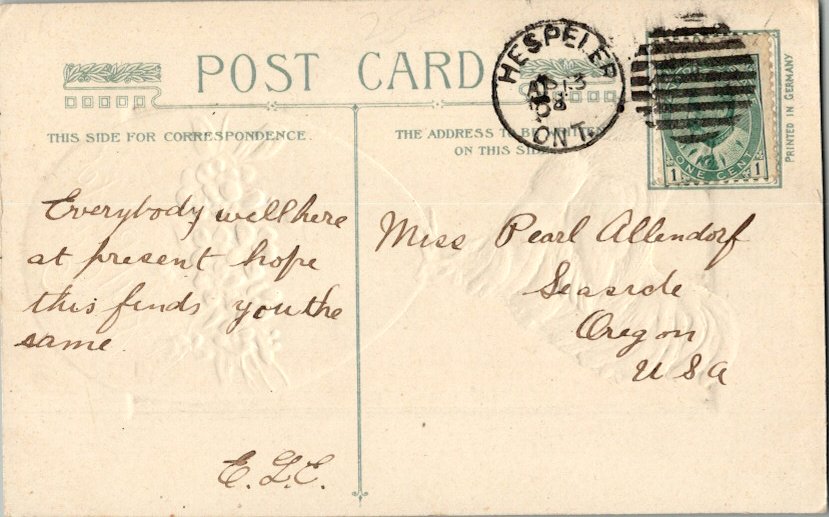 POST CARD
HESPELER
AP 13
08
ONT.
ONE CENT
1 1
PRINTED IN GERMANY
THIS SIDE FOR CORRESPONDENCE.
THE ADDRESS TO BE WRITTEN
ON THIS SIDE
Everybody well here
at present hope
this finds you the
same.
E. L. E.
Miss Pearl Allendorf
Seaside
Oregon
U S A